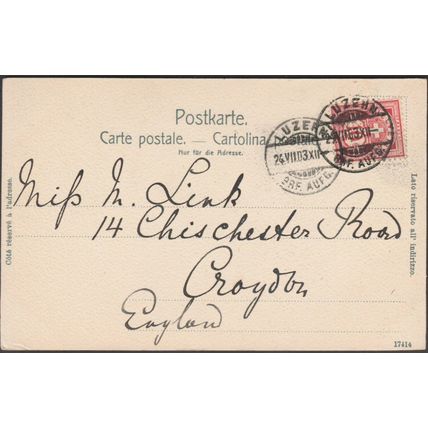 Postkarte.
Carte postale. — Cartolina
Nur für die Adresse.
LUZERN
24.VII.03.XII
BRF. AUFG.
LUZERN
BRF. AUFG.
Côté réservé à l'adresse.
Miss M. Link
14 Chischester Road
Croydon
England
Lato riservato all' indirizzo.
17414